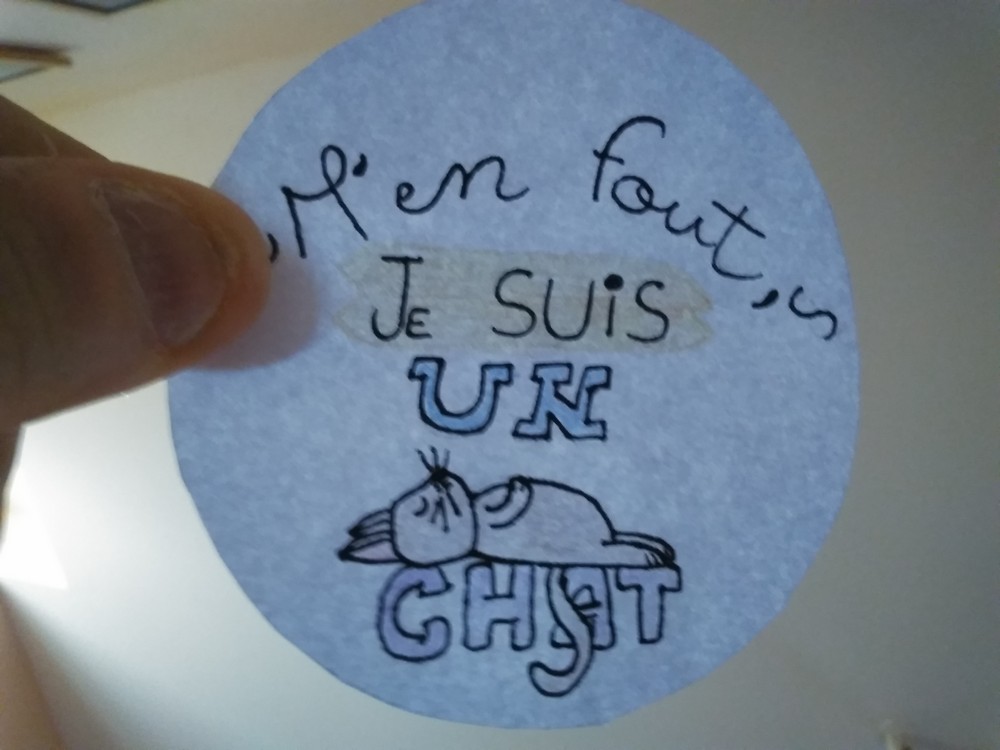 M'en fout,
JE SUiS
UN
CHAT